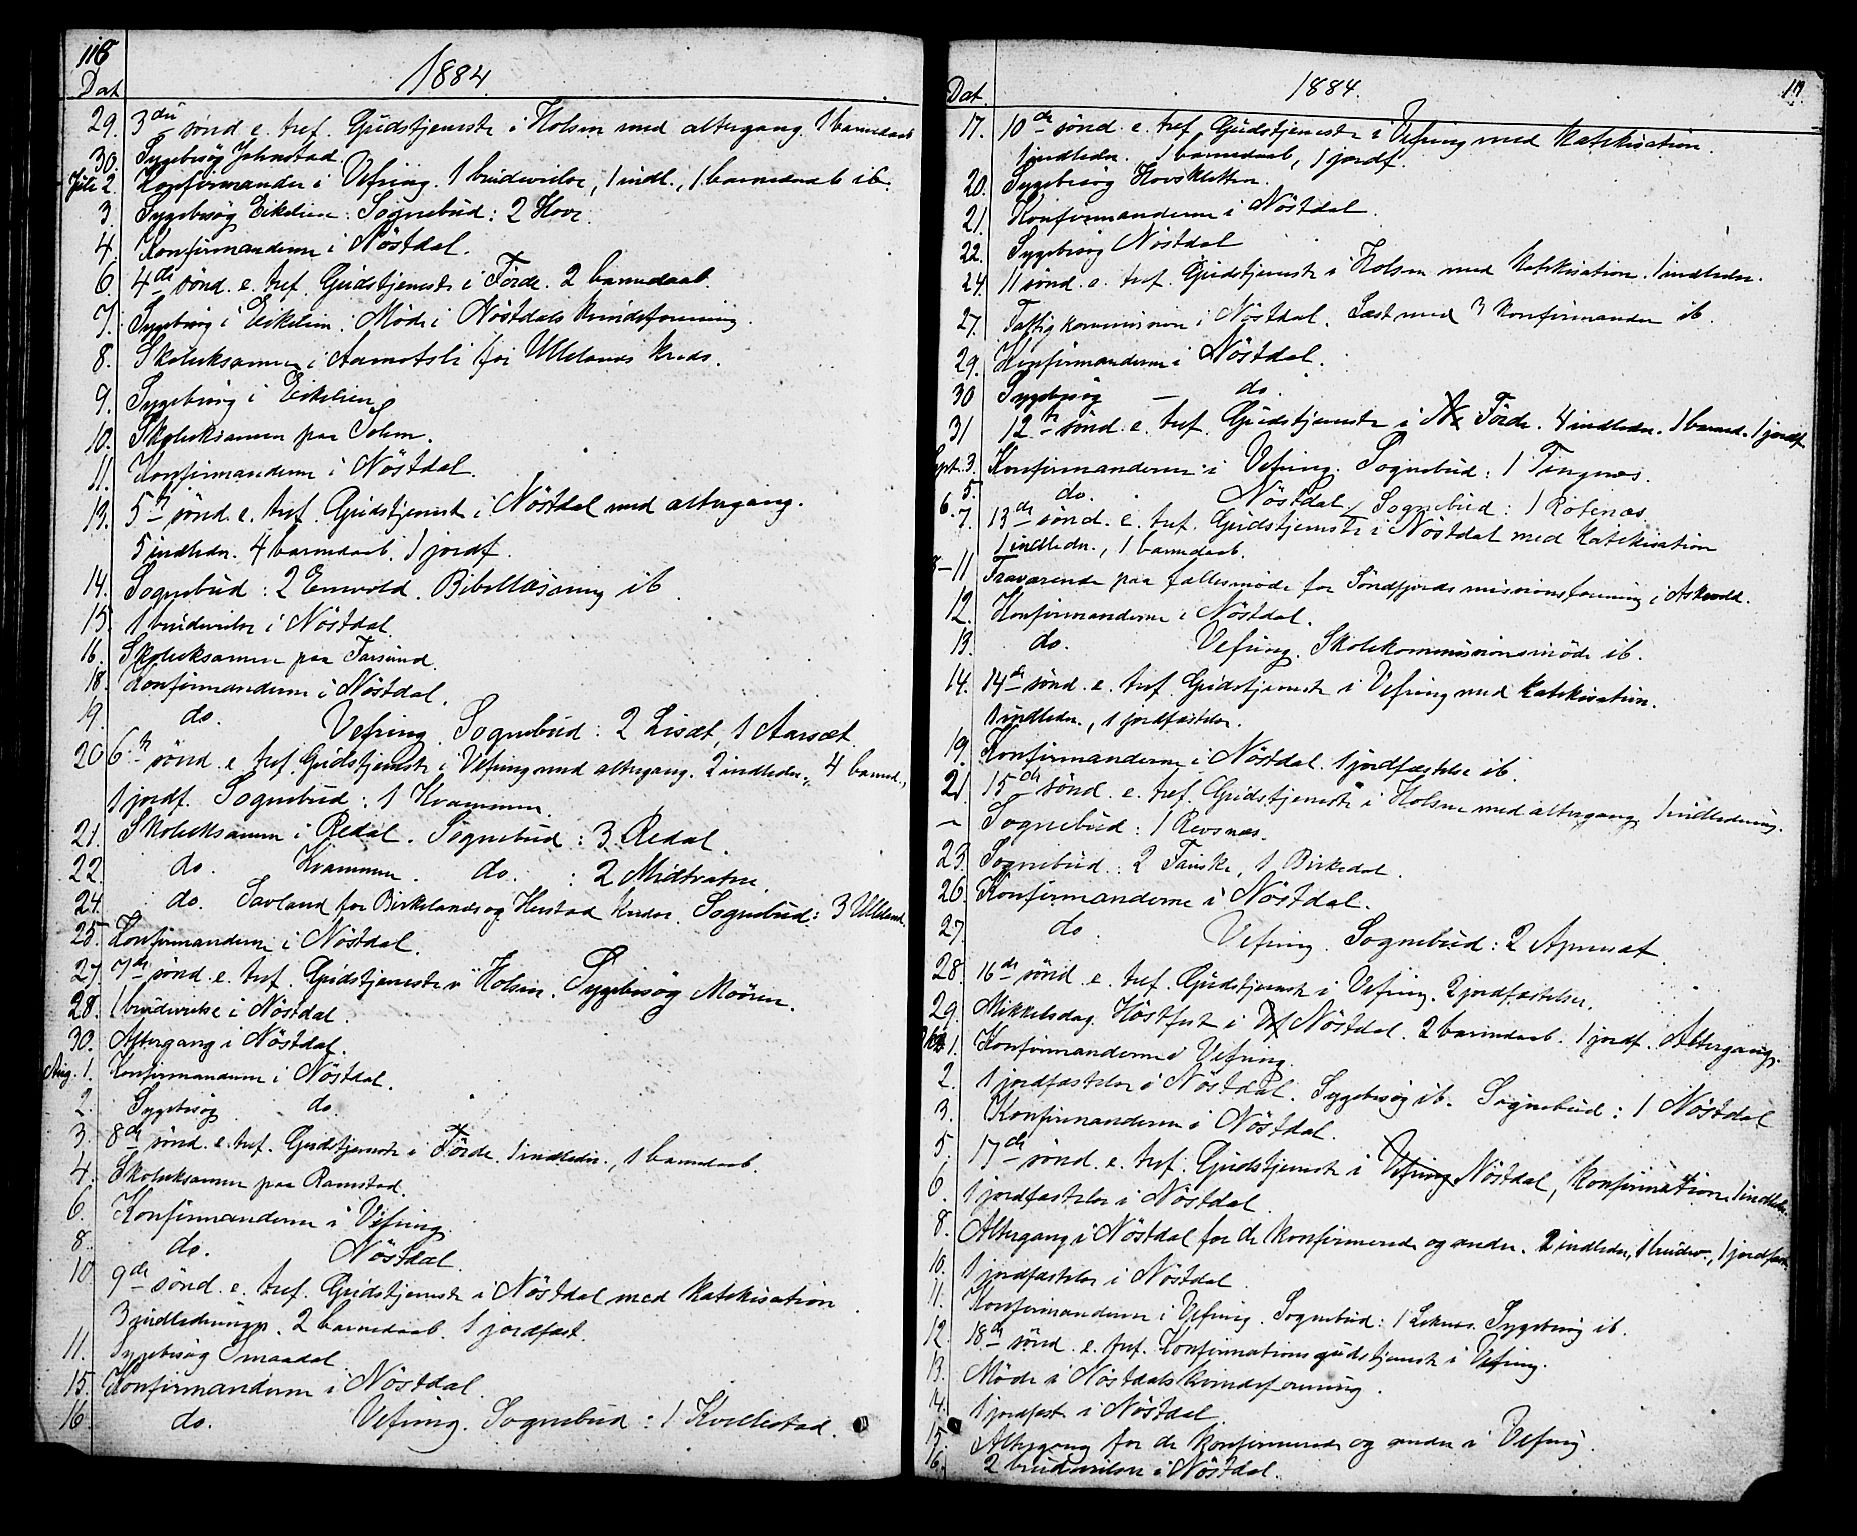 118
Dat. 1884.
29. 3die sönd. e. tref. Gudstjeneste i Holsen med altergang. 1 barnedaab
30. Sygebesög Johnstad.
Juli 2. Konfirmander i Vefring. 1 brudevielse, 1 indl., 1 barnedaab ib.
3. Sygebesög Eikelien. Sognebud: 2 Hove.
4. Konfirmanderne i Nöstdal.
6. 4de sönd. e. tref. Gudstjeneste i Förde. 2 barnedaab.
7. Sygebesög i Eikelien. Möde i Nöstdals kvindeforening.
8. Skoleeksamen i Aamotsli for Ullelands kreds.
9. Sygebesög i Eikelien
10. Skoleeksamen paa Solem.
11. Konfirmanderne i Nöstdal
13. 5te sönd. e. tref. Gudstjeneste i Nöstdal med altergang.
5 indledn. 4 barnedaab. 1 jordf.
14. Sognebud: 2 Emvold. Bibellæsning ib.
15. 1 brudevielse i Nöstdal.
16. Skoleeksamen paa Farsund.
18. Konfirmanderne i Nöstdal.
19. do. Vefring. Sognebud: 2 Lisæt, 1 Aarsæt.
20. 6te sönd. e. tref. Gudstjeneste i Vefring med altergang. 2 indledn., 4 barned.,
1 jordf. Sognebud: 1 Kvammen
21. Skoleeksamen i Redal. Sognebud: 3 Redal.
22. do. Kvammen. do.: 2 Midtvatne.
24. do. Savland for Birkelands og Herstad kredse. Sognebud: 3 Ulleland.
25. Konfirmanderne i Nöstdal.
27. 7de sönd. e. tref. Gudstjeneste i Holsen. Sygebesög Moören.
28. 1 brudevielse i Nöstdal.
30. Altergang i Nöstdal.
Aug. 1. Konfirmanderne i Nöstdal.
2. Sygebesög do.
3. 8de sönd. e. tref. Gudstjeneste i Förde. 1 indledn., 1 barnedaab.
4. Skoleeksamen paa Ramstad.
6. Konfirmanderne i Vefring.
8. do. Nöstdal.
10. 9de sönd. e. tref. Gudstjeneste i Nöstdal med katekisation.
3 indledninger. 2 barnedaab. 1 jordfæst.
11. Sygebesög Omaadal.
15. Konfirmanderne i Nöstdal.
16. do. Vefring. Sognebud: 1 Kvellestad.
Dat. 1884.
17. 10de sönd. e. tref. Gudstjeneste i Vefring med katekisation.
1 indledn. 1 barnedaab, 1 jordf.
20. Sygebesög Hovskletten.
21. Konfirmanderne i Nöstdal.
22. Sygebesög Nöstdal
24. 11 sönd. e. tref. Gudstjeneste i Holsen med katekisation. 1 indledn.
27. Fattigkommission i Nöstdal. Læst med 3 konfirmander ib.
29. Konfirmanderne i Nöstdal.
30 Sygebesög — do.
31 12te sönd. e. tref. Gudstjeneste i Förde. 4 indledn. 1 barned. 1 jordf
Sept. 3. Konfirmanderne i Vefring. Sognebud: 1 Tingnes.
5. do. Nöstdal
6. Sognebud: 1 Rotenæs
7. 13de sönd. e. tref. Gudstjeneste i Nöstdal med katekisation
1 indledn., 1 barnedaab.
8–11 Fraværende paa fællesmöde for Söndfjords missionsforening i Askvold.
12. Konfirmanderne i Nöstdal.
13. do. Vefring. Skolekommissionsmöde ib.
14. 14de sönd. e. tref. Gudstjeneste i Vefring med katekisation.
1 indledn., 1 jordfæstelse.
19. Konfirmanderne i Nöstdal. 1 jordfæstelse ib.
21. 15de sönd. e. tref. Gudstjeneste i Holsen med altergang. 1 indledning.
– Sognebud: 1 Revsnæs.
23. Sognebud: 2 Fauske, 1 Birkedal.
26. Konfirmanderne i Nöstdal.
27. do. Vefring Sognebud: 2 Apneset
28. 16de sönd. e. tref. Gudstjeneste i Vefring. 2 jordfæstelser.
29. Mikkelsdag. Höstfest i Nöstdal. 2 barnedaab. 1 jordf. Altergang.
1. Konfirmanderne i Vefring.
2. 1 jordfæstelse i Nöstdal. Sygebesög ib. Sognebud: 1 Nöstdal
3. Konfirmanderne i Nöstdal.
5. 17de sönd. e. tref. Gudstjeneste i Vefring Nöstdal, konfirmation. 1 indledn.
6. 1 jordfæstelse i Nöstdal.
8. Altergang i Nöstdal for de konfirmerede og andre. 2 indledn., 1 brudev., 1 jordfæst.
10. 1 jordfæstelse i Nöstdal.
11. Konfirmanderne i Vefring. Sognebud: 1 Leknes. Sygebesög ib.
12. 18de sönd. e. tref. Konfirmationsgudstjeneste i Vefring.
13. Möde i Nöstdals kvindeforening.
14. 1 jordfæst. i Nöstdal.
15. Altergang for de konfirmerede og andre i Vefring.
16. 2 brudevielser i Nöstdal.